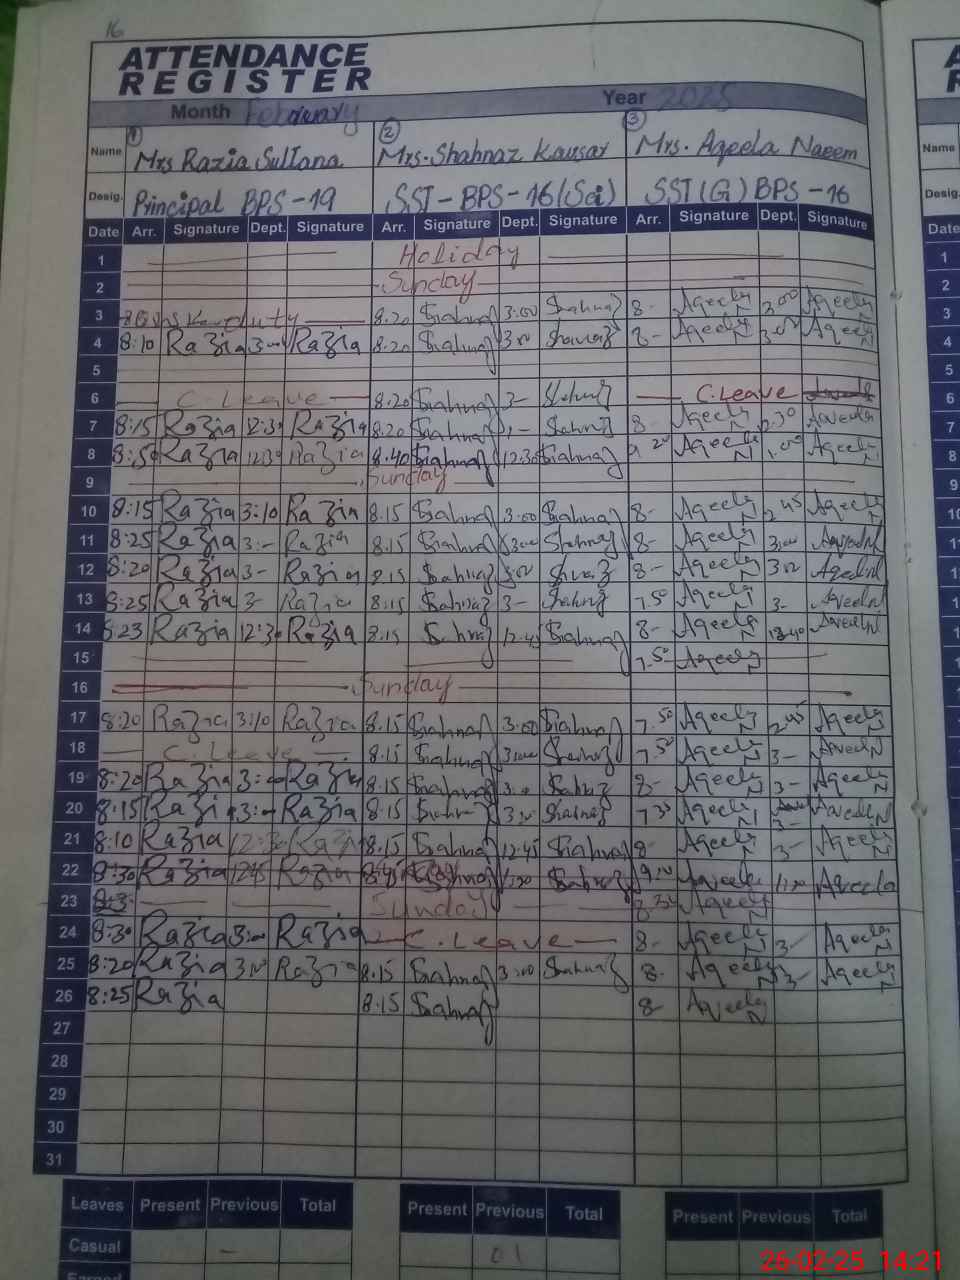 16
ATTENDANCE
REGISTER
Month February Year 2025
Name ① Mrs Razia Sultana ② Mrs. Shahnaz Kausar ③ Mrs. Aqeela Naeem
Desig. Principal BPS-19 SST-BPS-16(Sci) SST(G) BPS-16
Date Arr. Signature Dept. Signature Arr. Signature Dept. Signature Arr. Signature Dept. Signature
1 Holiday
2 Sunday
3 8.20 Shahnaz 3:00 Shahnaz 8- Aqeela 3.00 Aqeela
4 8:10 Razia 3- Razia 8.20 Shahnaz 3.00 Shahnaz 8- Aqeela 3.00 Aqeela
5
6 C.Leave 8.20 Shahnaz 3- Shahnaz C.Leave
7 8:15 Razia 12:30 Razia 8.20 Shahnaz Shahnaz 8- Aqeela 12.30 Aqeela
8 8:50 Razia 12:30 Razia 8.40 Shahnaz 12:30 Shahnaz 9.20 Aqeela 1.00 Aqeela
9 Sunday
10 8:15 Razia 3:10 Razia 8.15 Shahnaz 3:00 Shahnaz 8- Aqeela 2.45 Aqeela
11 8:25 Razia 3:- Razia 8.15 Shahnaz 3:00 Shahnaz 8- Aqeela 3.00 Aqeela
12 8:20 Razia 3- Razia 8.15 Shahnaz 3.00 Shahnaz 8- Aqeela 3.00 Aqeela
13 8:25 Razia 3- Razia 8:15 Shahnaz 3- Shahnaz 7.50 Aqeela 3- Aqeela
14 8:23 Razia 12:30 Razia 8.15 Shahnaz 12.45 Shahnaz 8- Aqeela 12.40 Aqeela
15 7.50 Aqeela
16 Sunday
17 8:20 Razia 3:10 Razia 8.15 Shahnaz 3:00 Shahnaz 7.50 Aqeela 2.45 Aqeela
18 C.Leave 8.15 Shahnaz 3:00 Shahnaz 7.50 Aqeela 3- Aqeela
19 8:20 Razia 3:- Razia 8.15 Shahnaz 3.0 Shahnaz 8- Aqeela 3- Aqeela
20 8:15 Razia 3:- Razia 8.15 Shahnaz 3.00 Shahnaz 7.30 Aqeela 3- Aqeela
21 8:10 Razia 12:30 Razia 8.15 Shahnaz 12:45 Shahnaz 8- Aqeela 3- Aqeela
22 8:30 Razia 12:45 Razia 8:45 Shahnaz 1:00 Shahnaz 9.10 Aqeela Aqeela
23 Sunday Aqeela
24 8:30 Razia 3:- Razia C.Leave 8- Aqeela 3- Aqeela
25 8:20 Razia 3.00 Razia 8.15 Shahnaz 3:00 Shahnaz 8- Aqeela 3- Aqeela
26 8:25 Razia 8.15 Shahnaz 8- Aqeela
27
28
29
30
31
Leaves Present Previous Total Present Previous Total Present Previous Total
Casual - 01
26-02-25 14:21
Name
Desig.
Date
1
2
3
4
5
6
7
8
9